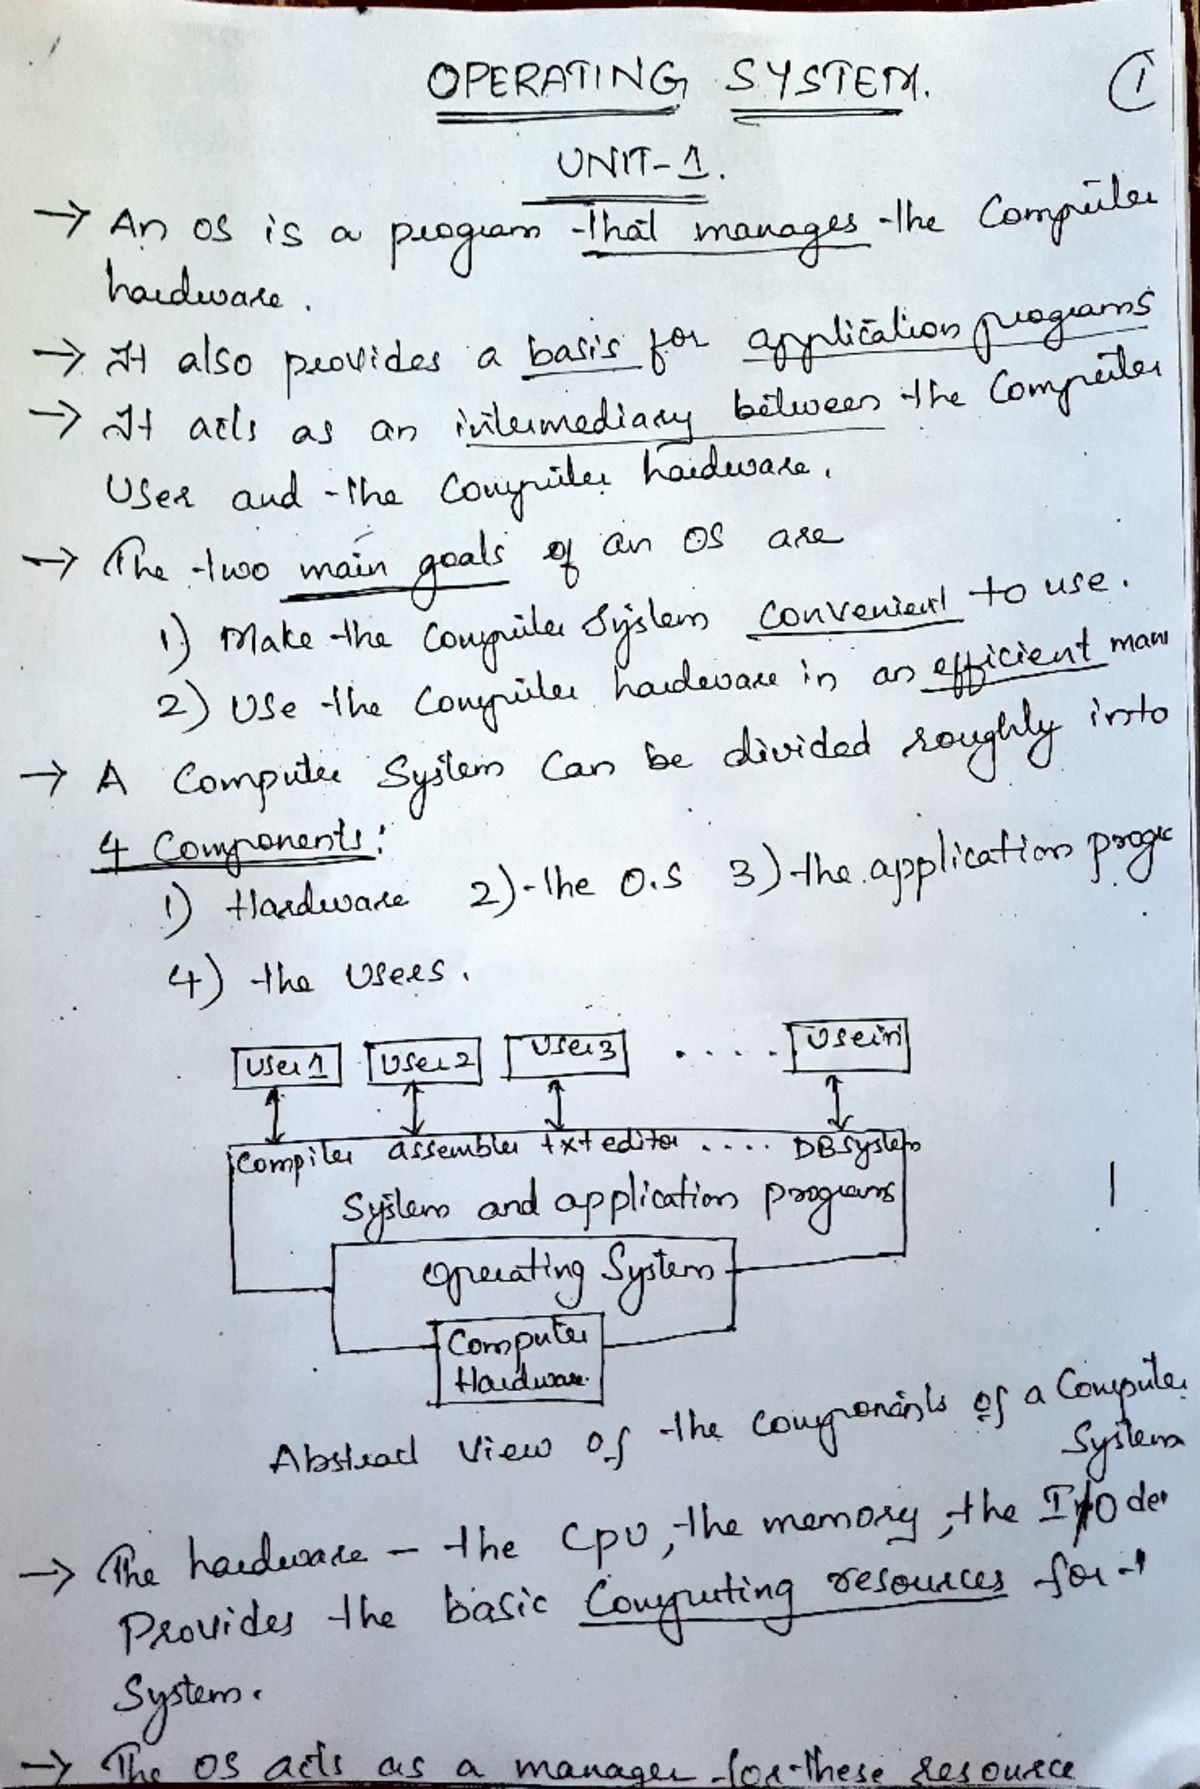 OPERATING SYSTEM. 1
UNIT-1.
→ An OS is a program that manages the Computer
hardware.
→ It also provides a basis for application programs
→ It acts as an intermediary between the Computer
User and the Computer hardware.
→ The two main goals of an OS are
1) Make the Computer System Convenient to use.
2) Use the Computer hardware in an efficient man
→ A Computer System Can be divided roughly into
4 Components:
1) Hardware 2) the O.S 3) the application progr
4) the Users.
User 1 User 2 User 3 ..... User n
Compiler assembler txt editor .... DBsystem
System and application programs
Operating System
Computer
Hardware.
Abstract View of the Components of a Computer
System
→ The hardware – the CPU, the memory, the I/O de
Provides the basic Computing resources for t
System.
→ The OS acts as a manager for these resource